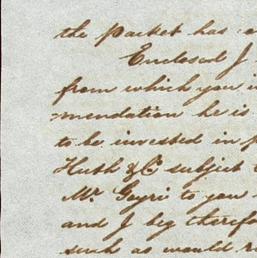 the packet has
Enclosed I
from which you
mendation he is
to be invested in
Huth & Co subject
Mr. Gayri to you
and I beg therefo
such as would re